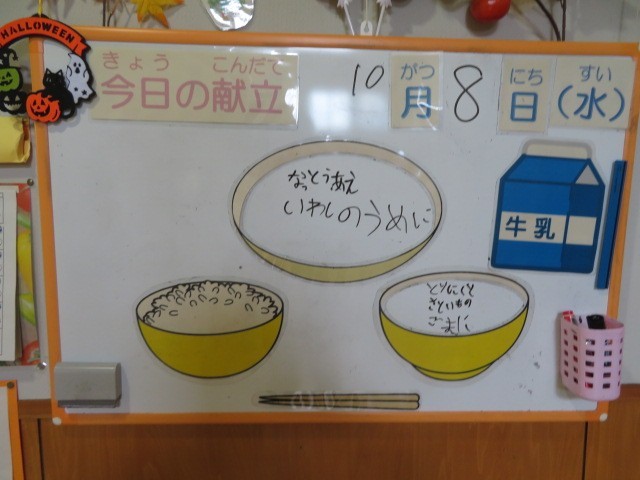 HALLOWEEN
きょう こんだて
今日の献立
10 がつ 8 にち すい
月 日 (水)
なっとうあえ
いわしのうめに
牛乳
とりにくと
さといもの
ごまに